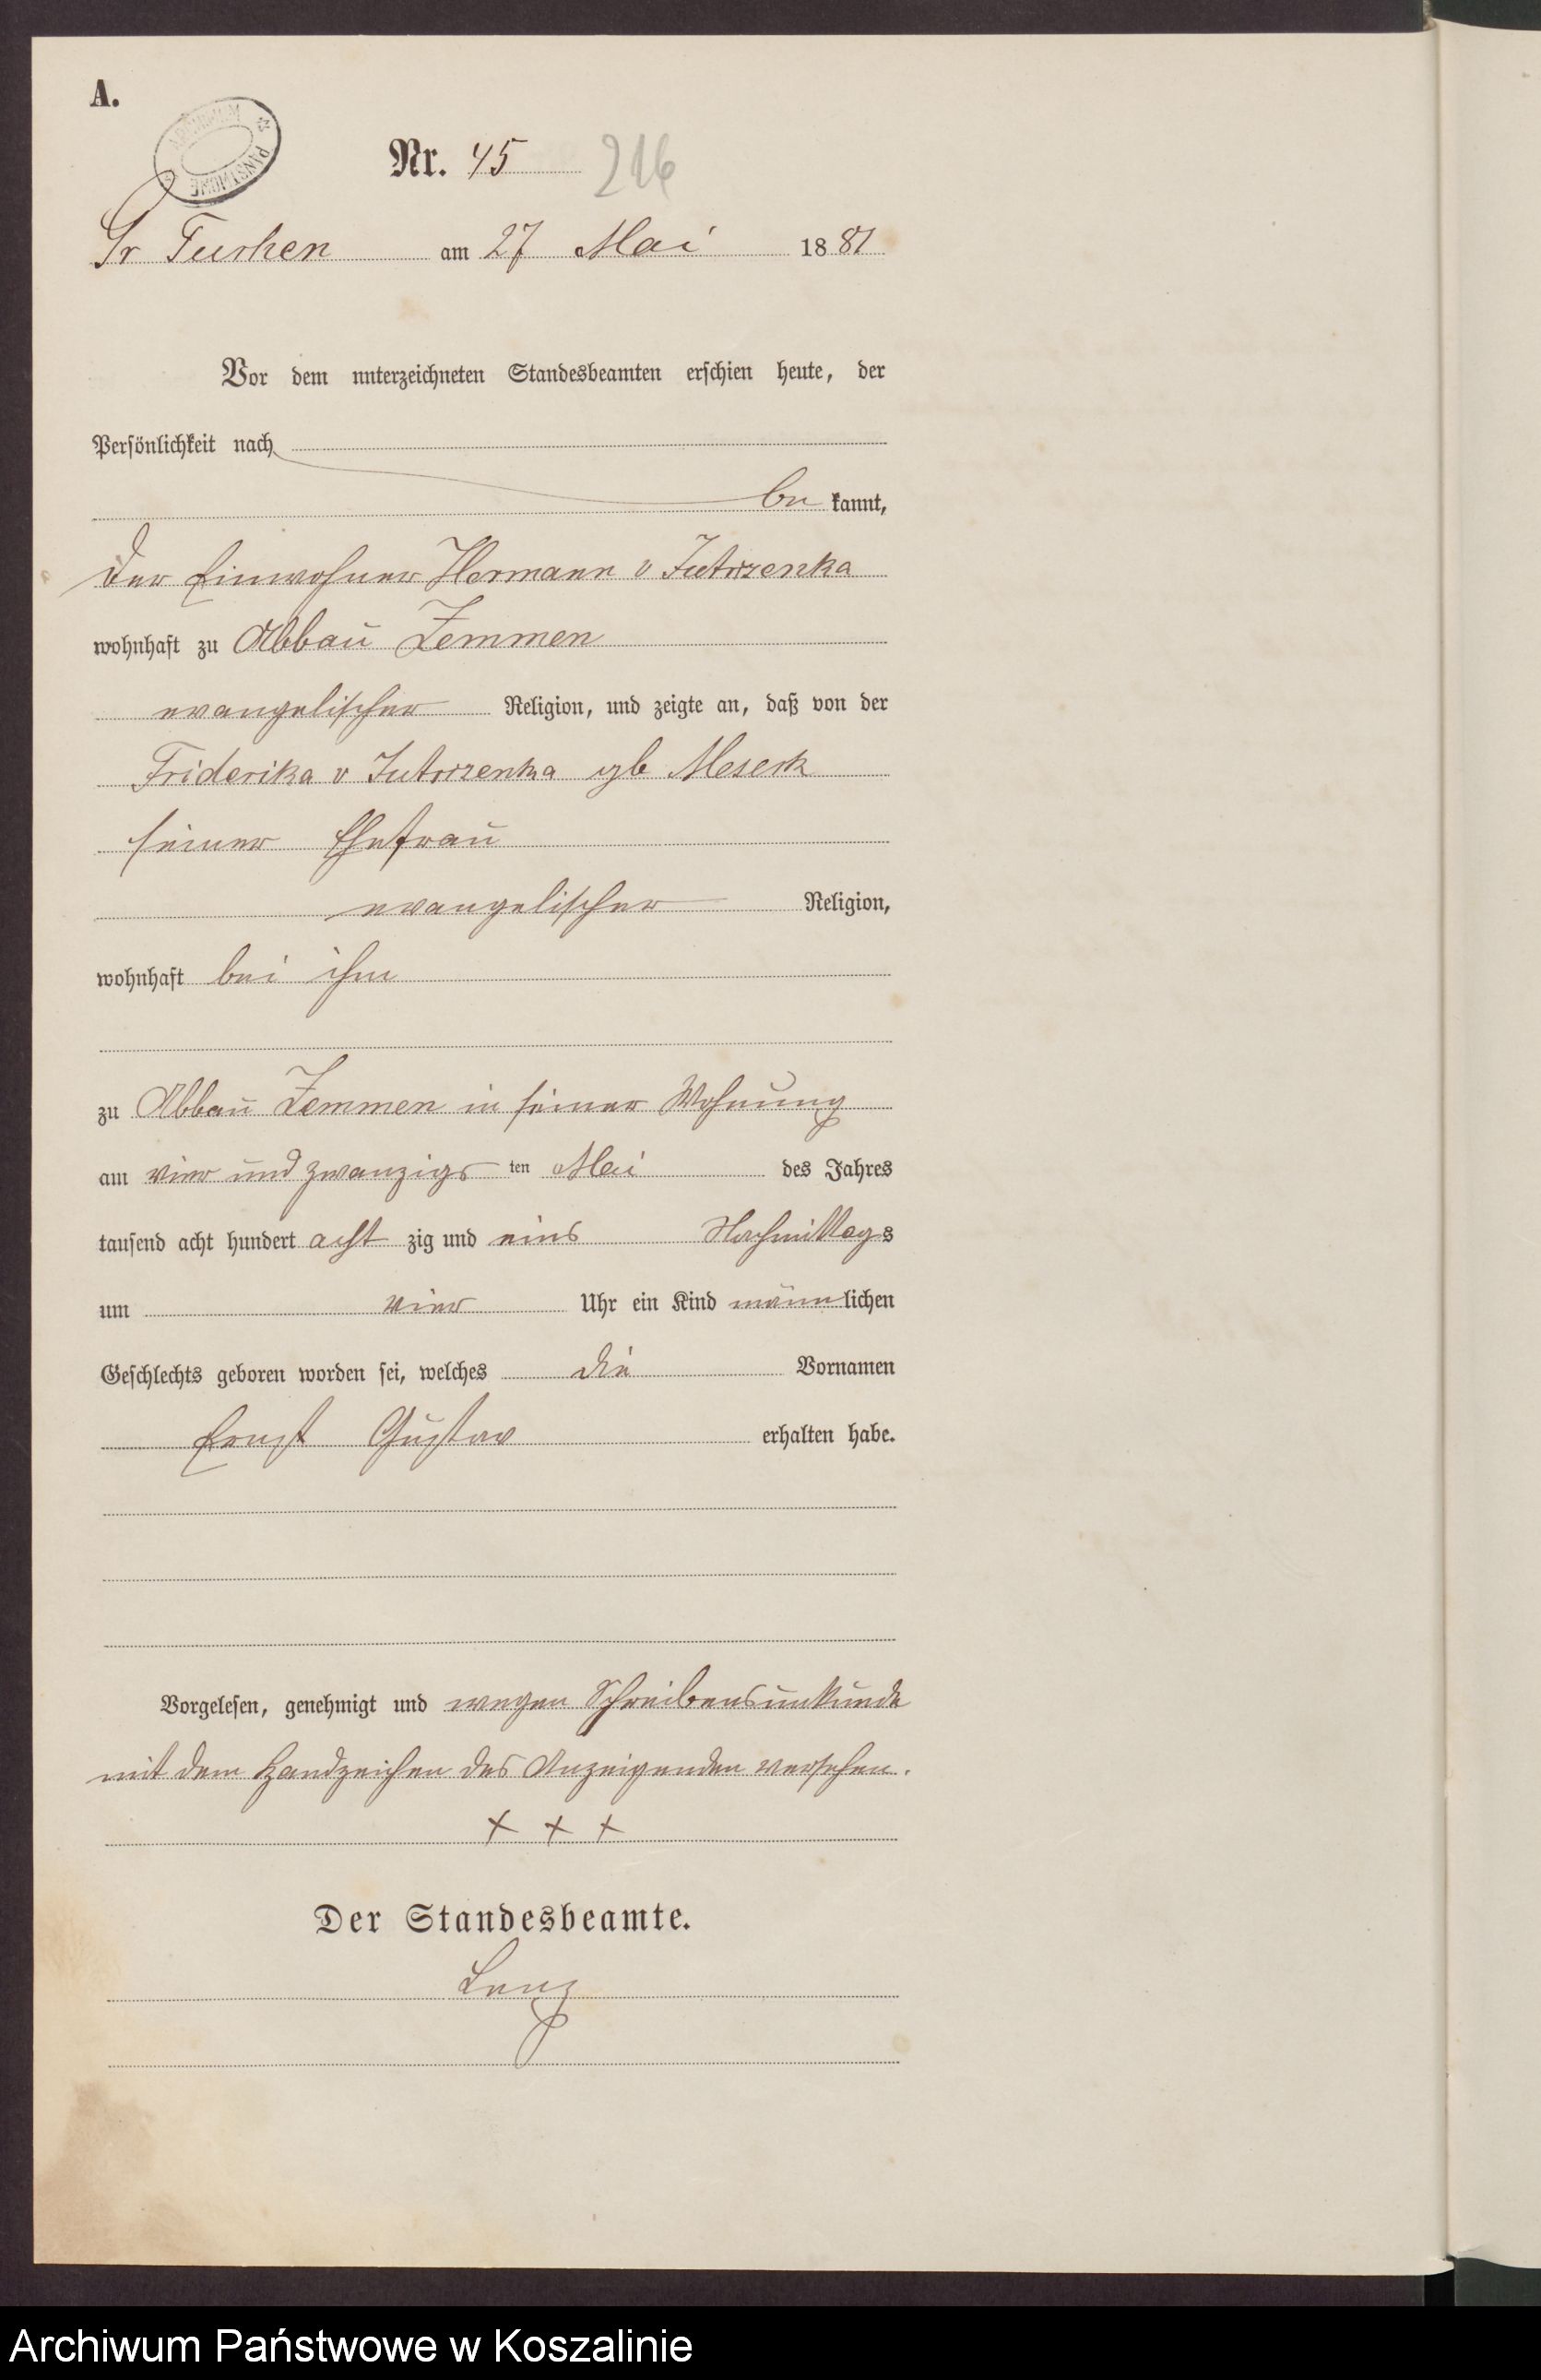 A.
ARCHIWUM PAŃSTWOWE
Nr. 45 216
Gr Tuchen am 27 Mai 1881
Vor dem unterzeichneten Standesbeamten erschien heute, der
Persönlichkeit nach
be kannt,
der Einwohner Hermann v Jutrzenka
wohnhaft zu Abbau Zemmen
evangelischer Religion, und zeigte an, daß von der
Friderika v Jutrzenka gb Meseck
seiner Ehefrau
evangelischer Religion,
wohnhaft bei ihm
zu Abbau Zemmen in seiner Wohnung
am vier und zwanzigs ten Mai des Jahres
tausend acht hundert acht zig und eins Nachmittags
um vier Uhr ein Kind männlichen
Geschlechts geboren worden sei, welches die Vornamen
Ernst Gustav erhalten habe.
Vorgelesen, genehmigt und wegen Schreibensunkunde
mit dem Handzeichen des Anzeigenden versehen.
+ + +
Der Standesbeamte.
Lenz
Archiwum Państwowe w Koszalinie